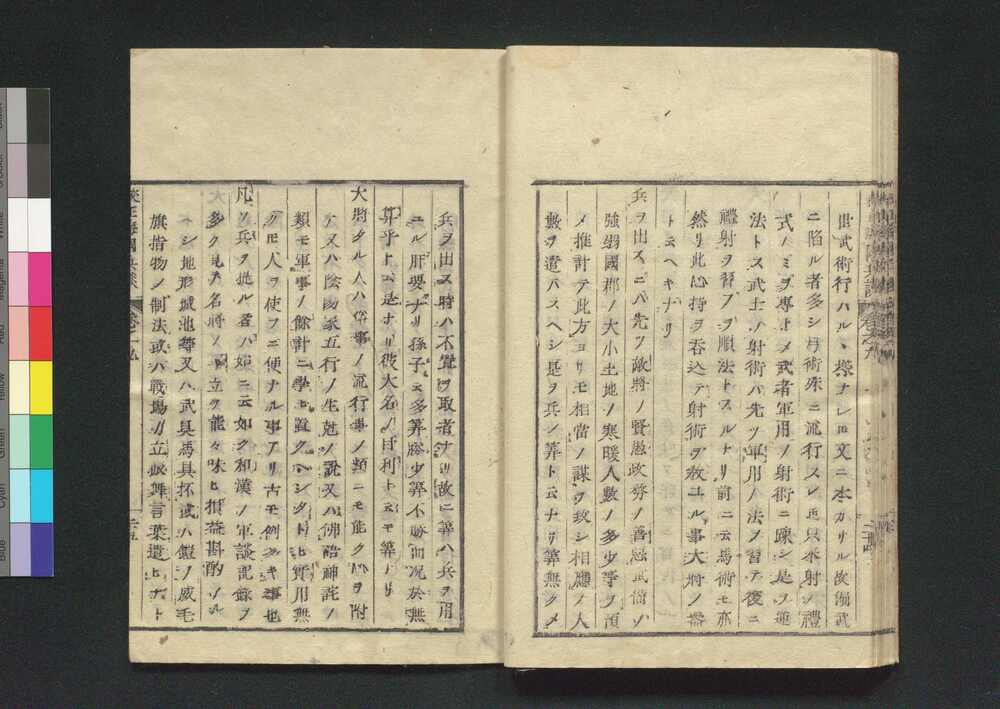 世武術行ハルヽ樣ナレ𪜈文ニ本カサル故偏武
ニ陷ル者多シ弓術殊ニ流行スレ𪜈只的射ノ禮
式ノミヲ專トメ武者軍用ノ射術ニ疎シ是ヲ逆
法トス武士ノ射術ハ先ツ軍用ノ法ヲ習テ後ニ
禮射ヲ習フヲ順法トスルナリ前ニ云馬術モ亦
然リ此心持ヲ呑込テ射術ヲ敎ユル事大將ノ器
トモ云ヘキナリ
兵ヲ出スニハ先ツ敵將ノ賢愚政務ノ善惡武備ノ
強弱國郡ノ大小土地ノ寒暖人數ノ多少等ヲ預
メ推計テ此方ヨリモ相當ノ謀ヲ致シ相應ノ人
數ヲ遣ハスヘシ是ヲ兵ノ算ト云ナリ算無クメ
兵ヲ出ス時ハ不覺ヲ取者ナリ故ニ算ハ兵ヲ用
ニル肝要ナリ孫子ニ云多算勝少算不勝而況於無
算乎トハ是ナリ彼大名ノ目利ト云モ算ナリ
大將タル人ハ俗事ノ流行事ノ類ニモ能ク心ヲ附
ケ又ハ陰陽家五行ノ生尅ノ說又ハ佛語神詫ノ
類モ軍事ノ餘計ニ學ヒ置クヘシタトヒ實用無
クモ人ヲ使フニ便ナル事アリ古モ例多キ事也
凡ソ兵ヲ提ル者ハ始ニ云如ク和漢ノ軍談記錄ヲ
多ク見テ名將ノ
ヘシ地形城池等又ハ武具馬具抔或ハ鎧ノ威毛
旗指物ノ制法或ハ戰場ノ立振舞言葉遣ヒナト